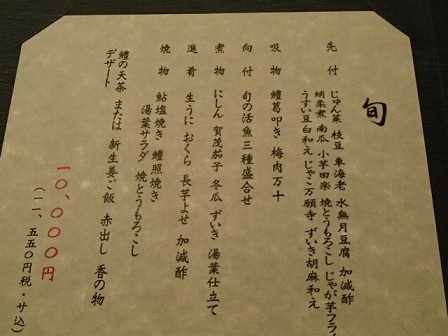 旬
先付 じゅん菜 枝豆 車海老 水無月豆腐 加減酢
蛸柔煮 南瓜 小芋田楽 焼とうもろこし じゃが芋フライ
うすい豆白和え じゃこ万願寺 ずいき胡麻和え
吸物 鱧葛叩き 梅肉万十
向付 旬の活魚三種盛合せ
煮物 にしん 賀茂茄子 冬瓜 ずいき 湯葉仕立て
進肴 生うに おくら 長芋よせ 加減酢
焼物 鮎塩焼き 鱧照焼き
湯葉サラダ 焼とうもろこし
鱧の天茶 または 新生姜ご飯 赤出し 香の物
デザート
一〇、〇〇〇円
（一一、五五〇円税・サ込）